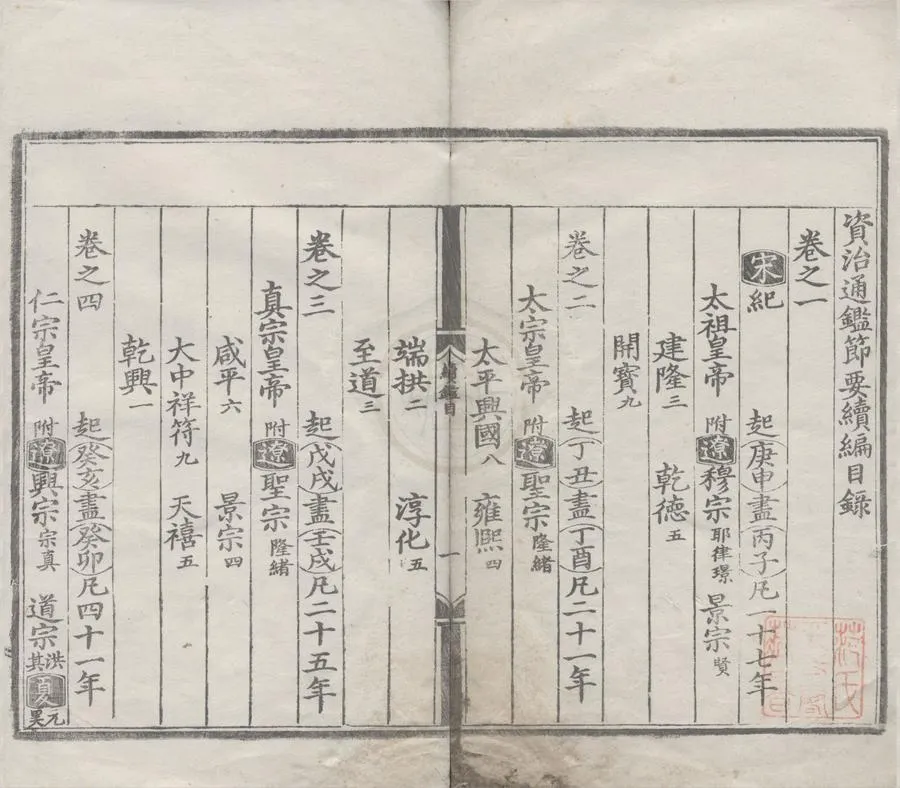 資治通鑑節要續編目錄
卷之一
宋紀 起庚申盡丙子凡一十七年
太祖皇帝 附遼穆宗耶律璟 景宗賢
建隆三 乾德五
開寶九
卷之二 起丁丑盡丁酉凡二十一年
太宗皇帝 附遼聖宗隆緒
太平興國八 雍熙四
續鑑目 一
端拱二 淳化五
至道三
卷之三 起戊戌盡壬戌凡二十五年
真宗皇帝 附遼聖宗隆緒
咸平六 景宗四
大中祥符九 天禧五
乾興一
卷之四 起癸亥盡癸卯凡四十一年
仁宗皇帝 附遼興宗宗真 道宗洪其 夏元昊